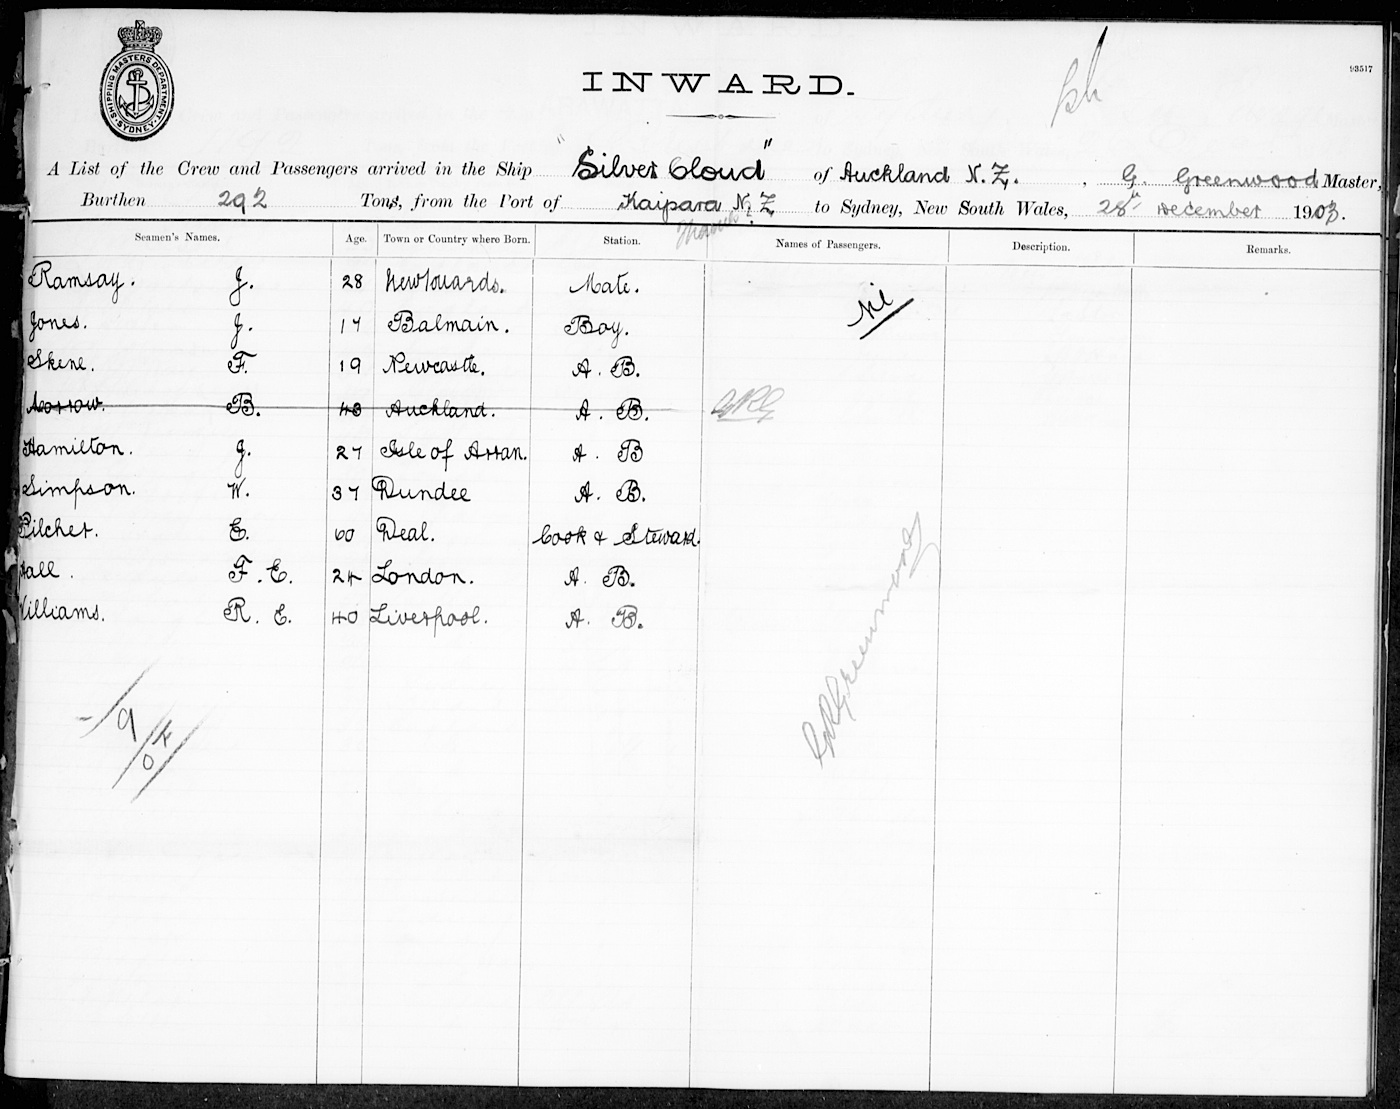 SHIPPING MASTERS DEPARTMENT. SYDNEY.
INWARD.
93517
A List of the Crew and Passengers arrived in the Ship "Silver Cloud" of Auckland N. Z. , G. Greenwood Master,
Burthen 292 Tons, from the Port of Kaipara N. Z. to Sydney, New South Wales, 28th December 1903.
Seamen's Names. Age. Town or Country where Born. Station. Names of Passengers. Description. Remarks.
Ramsay. J. 28 Newtouards. Mate. Nil
Jones. J. 17 Balmain. Boy.
Skene. F. 19 Newcastle. A. B.
B. Auckland. A. B. GRG
Hamilton. J. 27 Isle of Arran. A. B
Simpson. W. 37 Dundee A. B.
Pilcher. E. 60 Deal. Cook & Steward.
Hall. F. E. 24 London. A. B.
Williams. R. E. 40 Liverpool. A. B.
GRGreenwood
9